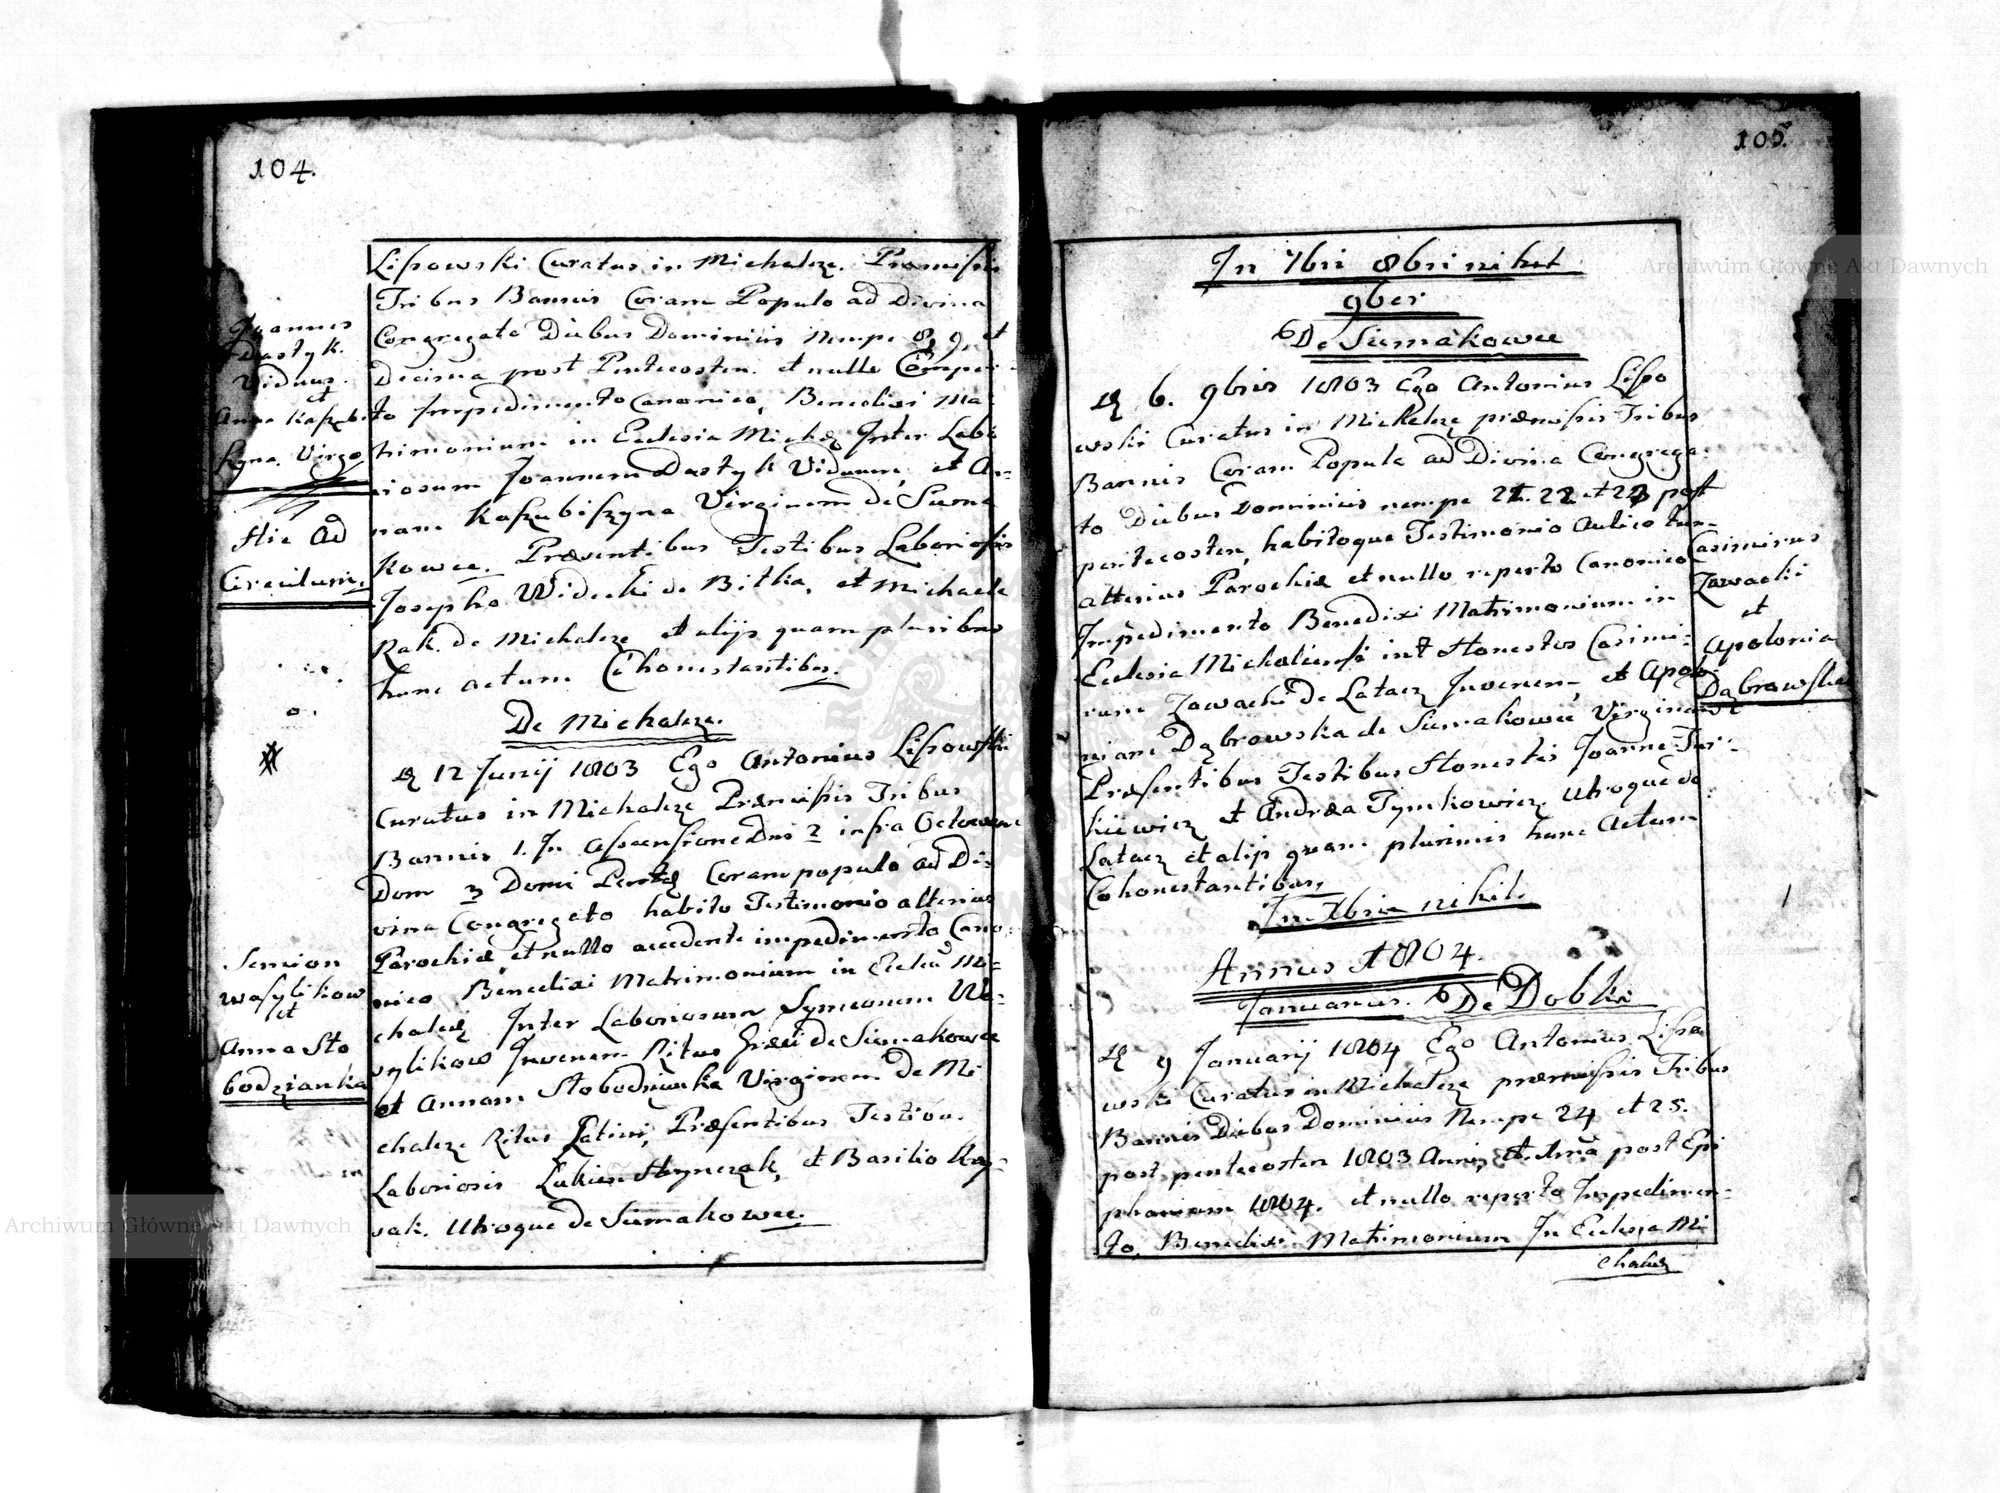 104.
Joannes
Dastyk.
Viduus.
et
Anna Kaszubi
szyna. Virgo
Hic ad
Circulum.
Semion
Wasylikow
et
Anna Sło
bodzianka
Lissowski Curatus in Michalcze. Præmissis
Tribus Bannis Coram Populo ad Divina
Congregato Diebus Dominicis nempe 8, 9, et
Decima post Pentecosten. et nullo Comper
to Impedimento Canonico, Benedixi Ma
trimonium in Eclesia Micha Inter Labo
riosum Joannem Dastyk Viduum, et An-
nam Kaszubiszyna Virginem de Siema
kowce. Præsentibus Testibus Laboriosis
Josepho Widecki de Bitka, et Michaele
Rak. de Michalcze et alijs quam pluribus
hunc actum Cohonestantibus.
De Michalcze.
12 Junij 1803 Ego Antonius Lissowski
Curatus in Michalcze Præmissis Tribus
Bannis 1. In Ascensione Dni 2 infra Octavam
Dom 3 Domi Coram populo ad Di-
vina Congregato habito Testimonio alterius
Parochiæ, et nullo accedente impedimento Cano
nico Benedixi Matrimonium in Eclesia Mi-
chalcze Inter Laboriosum Symeonem Wa-
sylikow Juvenem Ritus Græci de Siemakowce
et Annam Słobodzianka Virginem De Mi
chalcze Ritus Latini, Præsentibus Testibus
Laboriosis Hrynczak, et Basilio
sak. Utroque de Siemakowce.
105.
In 7bri 8bri nihil
9ber
De Siemakowce
6. 9bris 1803 Ego Antonius Lisso
wski Curatus in Michalcze præmissis Tribus
Bannis Coram Populo ad Divina Congrega
to Diebus Dominicis nempe 21. 22 et 23 post
pentecosten, habitoque Testimonio
alterius Parochiæ et nullo reperto Canonico
Impedimento Benedixi Matrimonium in
Eclesia Michalcensi Honestos Casimi-
rum Zawacki de Latacz Juvenem, et Apolo
niam Dąbrowska de Siemakowce Virginem
Præsentibus Testibus Honestis Joanne Jur-
kiewicz et Andrea Tymkowicz Utroque de
Latacz et alijs quam plurimis hunc Actum
Cohonestantibus.
In Xbris nihil.
Annus 1804.
Januarius. De Dobki
9 Januarij 1804 Ego Antonius Lisso
wski Curatus in Michalcze præmissis Tribus
Bannis Diebus Dominicis Nempe 24 et 25.
post pentecosten 1803 Anni, et 1ma post Epi
phaniam 1804. et nullo reperto Impedimen-
to, Benedixi Matrimonium In Eclesia Mi
chalcze
Casimirus
Zawacki
et
Apolonia
Dąbrowska
Archiwum Główne Akt Dawnych
Archiwum Główne Akt Dawnych